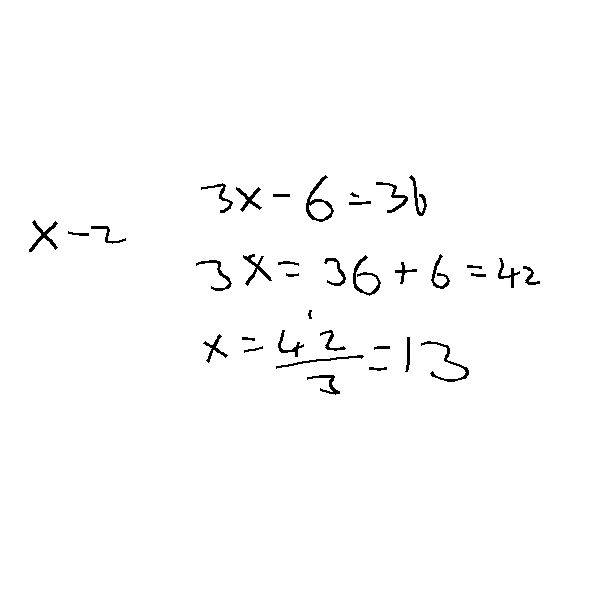 3x - 6 = 36
x - 2
3x = 36 + 6 = 42
x = 4'2/3 = 13